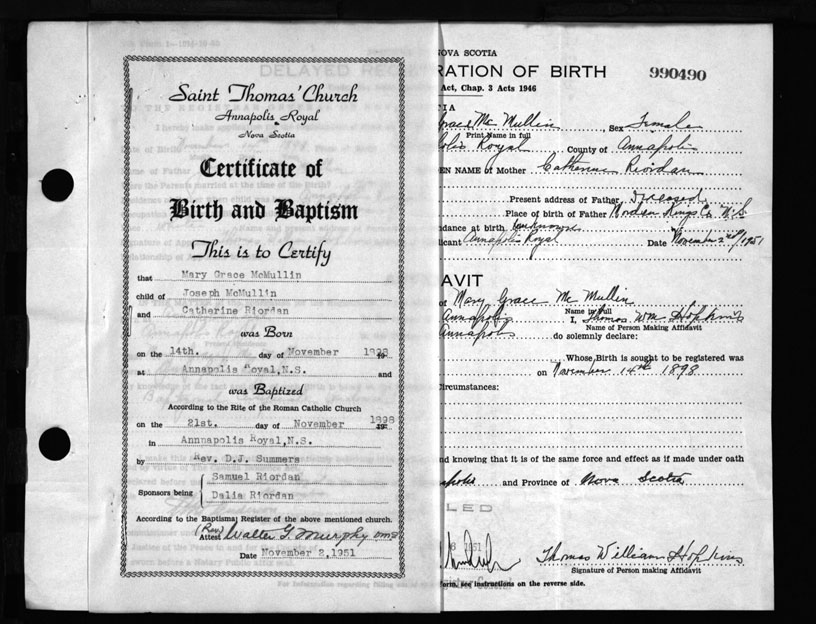 Saint Thomas' Church
Annapolis Royal
Nova Scotia
Certificate of
Birth and Baptism
This is to Certify
that Mary Grace McMullin
child of Joseph McMullin
and Catherine Riordan
was Born
on the 14th. day of November 1898
at Annapolis Royal, N.S. and
was Baptized
According to the Rite of the Roman Catholic Church
on the 21st. day of November 1898
in Annnapolis Royal, N.S.
by Rev. D.J. Summers
Samuel Riordan
Sponsors being Dalia Riordan
According to the Baptismal Register of the above mentioned church.
(Rev) Attest Walter G. Murphy
Date November 2, 1951
NOVA SCOTIA
RATION OF BIRTH 990490
Act, Chap. 3 Acts 1946
Grace Mc Mullin, Sex Female
Print Name in full
olis Royal County of Annapolis
EN NAME of Mother Catherine Riordan
Present address of Father Deceased
Place of birth of Father Kings Co N.S.
dance at birth Unknown
licant Annapolis Royal Date November 2nd/1951
AVIT
of Mary Grace Mc Mullin
Name in Full
Annapolis I, Thomas Wm Hopkins
Name of Person Making Affidavit
Annapolis do solemnly declare:
Whose Birth is sought to be registered was
on November 14th 1898
ircumstances:
nd knowing that it is of the same force and effect as if made under oath
apolis and Province of Nova Scotia
LED
1951
Thomas William Hopkins
Signature of Person making Affidavit
form, see instructions on the reverse side.